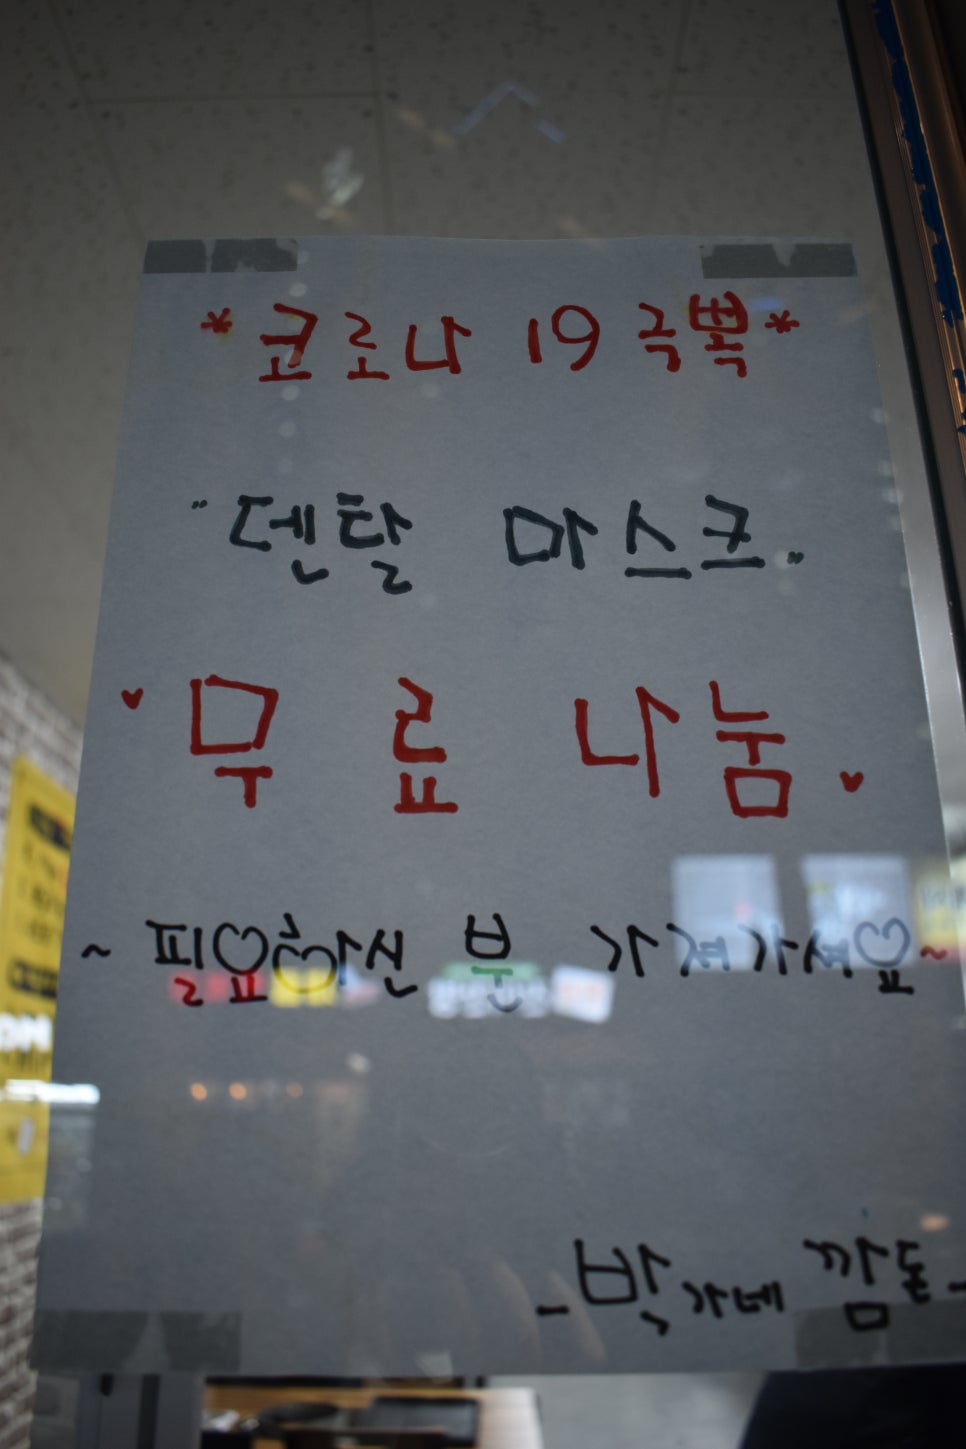 *코로나 19 극뽁*
"덴탈 마스크"
♥무료 나눔♥
~필요하신 분 가져가세요~